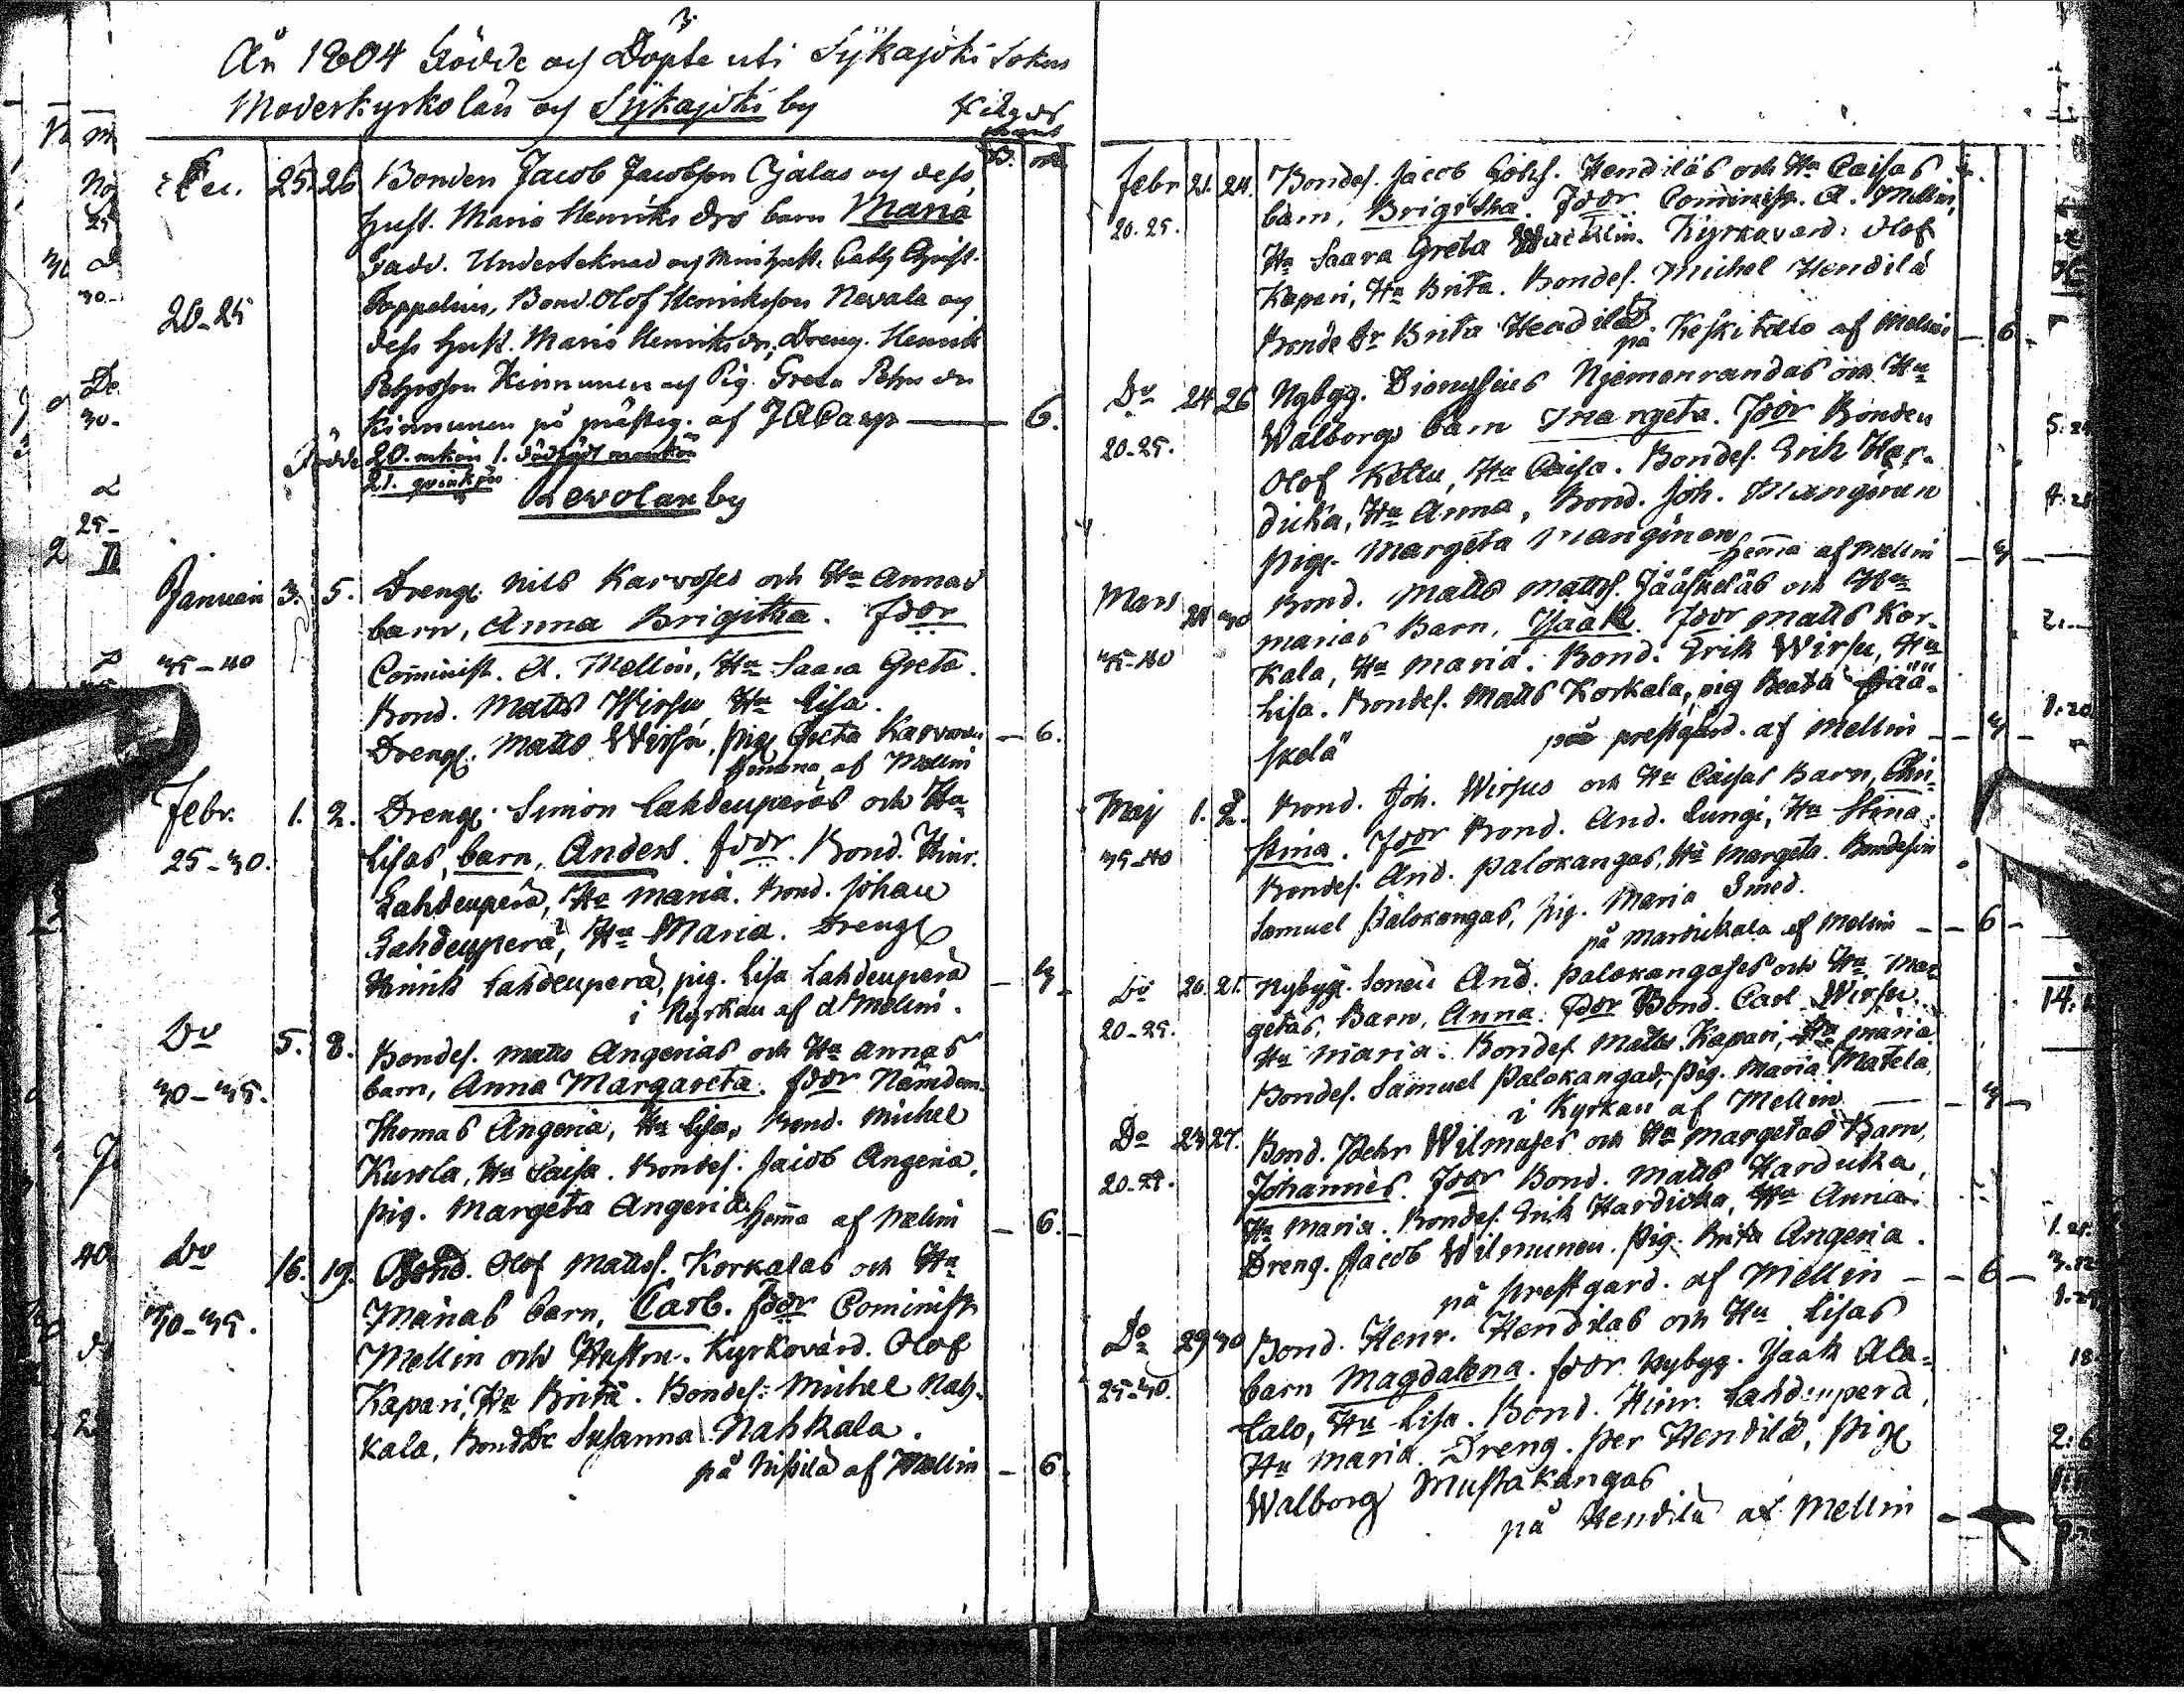 3.
År 1804 Födde och Döpte uti Sijkajoki Sokns
Moderkyrko län och Sijkajoki by
Dec. 25. 26 Bonden Jacob Jacobson Ojalas och dess
hust. Maria Henriks drs barn Maria
Fadd. Underteknad och min hust. Cath. Christ.
20-25 Toppelius, Bond. Olof Henriksson Nevala och
dess hust. Maria Henriks dr, Dreng. Henrik
Pehrsson Kinnunen och Pig. Greta Pehrs dr
Kinnunen på prästg. af 6.
Födde 20. mkön 1. dödfödt mankön
21. qvinkön
Revolax by
Januari 3. 5. Drengs. Nils Karvoses och Hu Annas
barn, Anna Brigitha. fddr
35-40 Comminist. A. Mellin, Hu Saara Greta.
Bond. Matts Wirsu, Hu Lisa.
Drengs. Matts Wirsu, pig. Greta Karvonen — 6.
hemma af Mellin
Febr. 1. 2. Drengs. Simon Lahdenperäs och Hu
Lisas, barn, Anders. fddr. Bond. Hinr.
25-30. Lahdenperä, Hu Maria. Bond. Johan
Lahdenperä, Hu Maria. Drengs
Hinrik Lahdenperä, pig. Lisa Lahdenperä
i Kyrkan af A Mellin.
Do 5. 8. Bondes. Matts Angerias och Hu Annas
barn, Anna Margareta. fddr Nämdem.
30-35. Thomas Angeria, Hu Lisa, Bond. Michel
Kurola, Hu Caisa. Bondes. Jacob Angeria,
pig. Margeta Angeria
hemma af Mellin — 6.
Do 16. 19. Bond. Olof Mattss. Korkalas och Hu
Marias barn, Carl. fddr Cominist
30-35. Mellin och Hustrun. Kyrkovärd. Olof
Kapari, Hu Brita. Bondes: Michel Nah-
kala, Bond Dr Susanna Nahkala.
på Nissilä af Mellin — 6
Febr 21. 24. Bondes. Jacob Hendiläs och Hu Caisas
barn, Brigitha. fddr Cominist. A. Mellin,
20.25. Hu Saara Greta Kyrkovärd: Olof
Kapari, Hu Brita. Bondes. Michel Hendilä
Bonde Dr Brita Hendilä
på Keskitalo af Mellin — 6
Do 24 26 Nybygg. Dionysius Njemenrandas och Hu
Walborgs barn Margeta. fddr Bonden
20-25. Olof Kettu, Hu Caisa. Bondes. Erik Har-
dicka, Hu Anna, Bond. Joh. Manginen
pigs. Margeta Manginen
hemma af Mellin
Mars 28 30 Bond. Matts Mattss. Jääskeläs och Hu
Marias Barn, Isaak. fddr Matts Kor-
35-40 kala, Hu Maria. Bond. Erik Wirsu, Hu
Lisa. Bondes. Matts Korkala, pig Beata Jää-
skelä
på prestgård. af Mellin
Maj 1. 2. Bond. Joh. Wirsus och Hu Caisas Barn, Chri-
stina. fddr Bond. And. Lungi, Hu Stina.
35-40 Bondes. And. Palokangas, Hu Margeta. Bondeson
Samuel Palokangas, pig. Maria Smed.
på Mardukala af Mellin — 6
Do 20. 21. Nybygg. Sonen And. Palokangases och Hu Mar-
getas, Barn, Anna. fddr Bond. Carl Wirsu,
20-25. Hu Maria. Bondes Matts Kapari, Hu Maria
Bondes. Samuel Palokangas, Pig. Maria Matela,
i Kyrkan af Mellin
Do 23 27. Bond. Pehr Wilmuses och Hu Margetas Barn,
Johannes. fddr Bond. Matts Hardicka,
Hu Maria. Bondes. Erik Hardicka, Hu Anna.
Dreng. Jacob Wilmunen, Pig. Brita Angeria.
på prestgard. af Mellin — 6
Do 29 30 Bond. Henr. Hendiläs och Hu Lisas
barn Magdalena. fddr Nybygg. Isaak Ala-
25-30. talo, Hu Lisa. Bond. Hinr. Lahdenperä,
Hu Maria. Dreng. Per Hendilä, Pig
Walborg Mustakangas
på Hendilä af Mellin